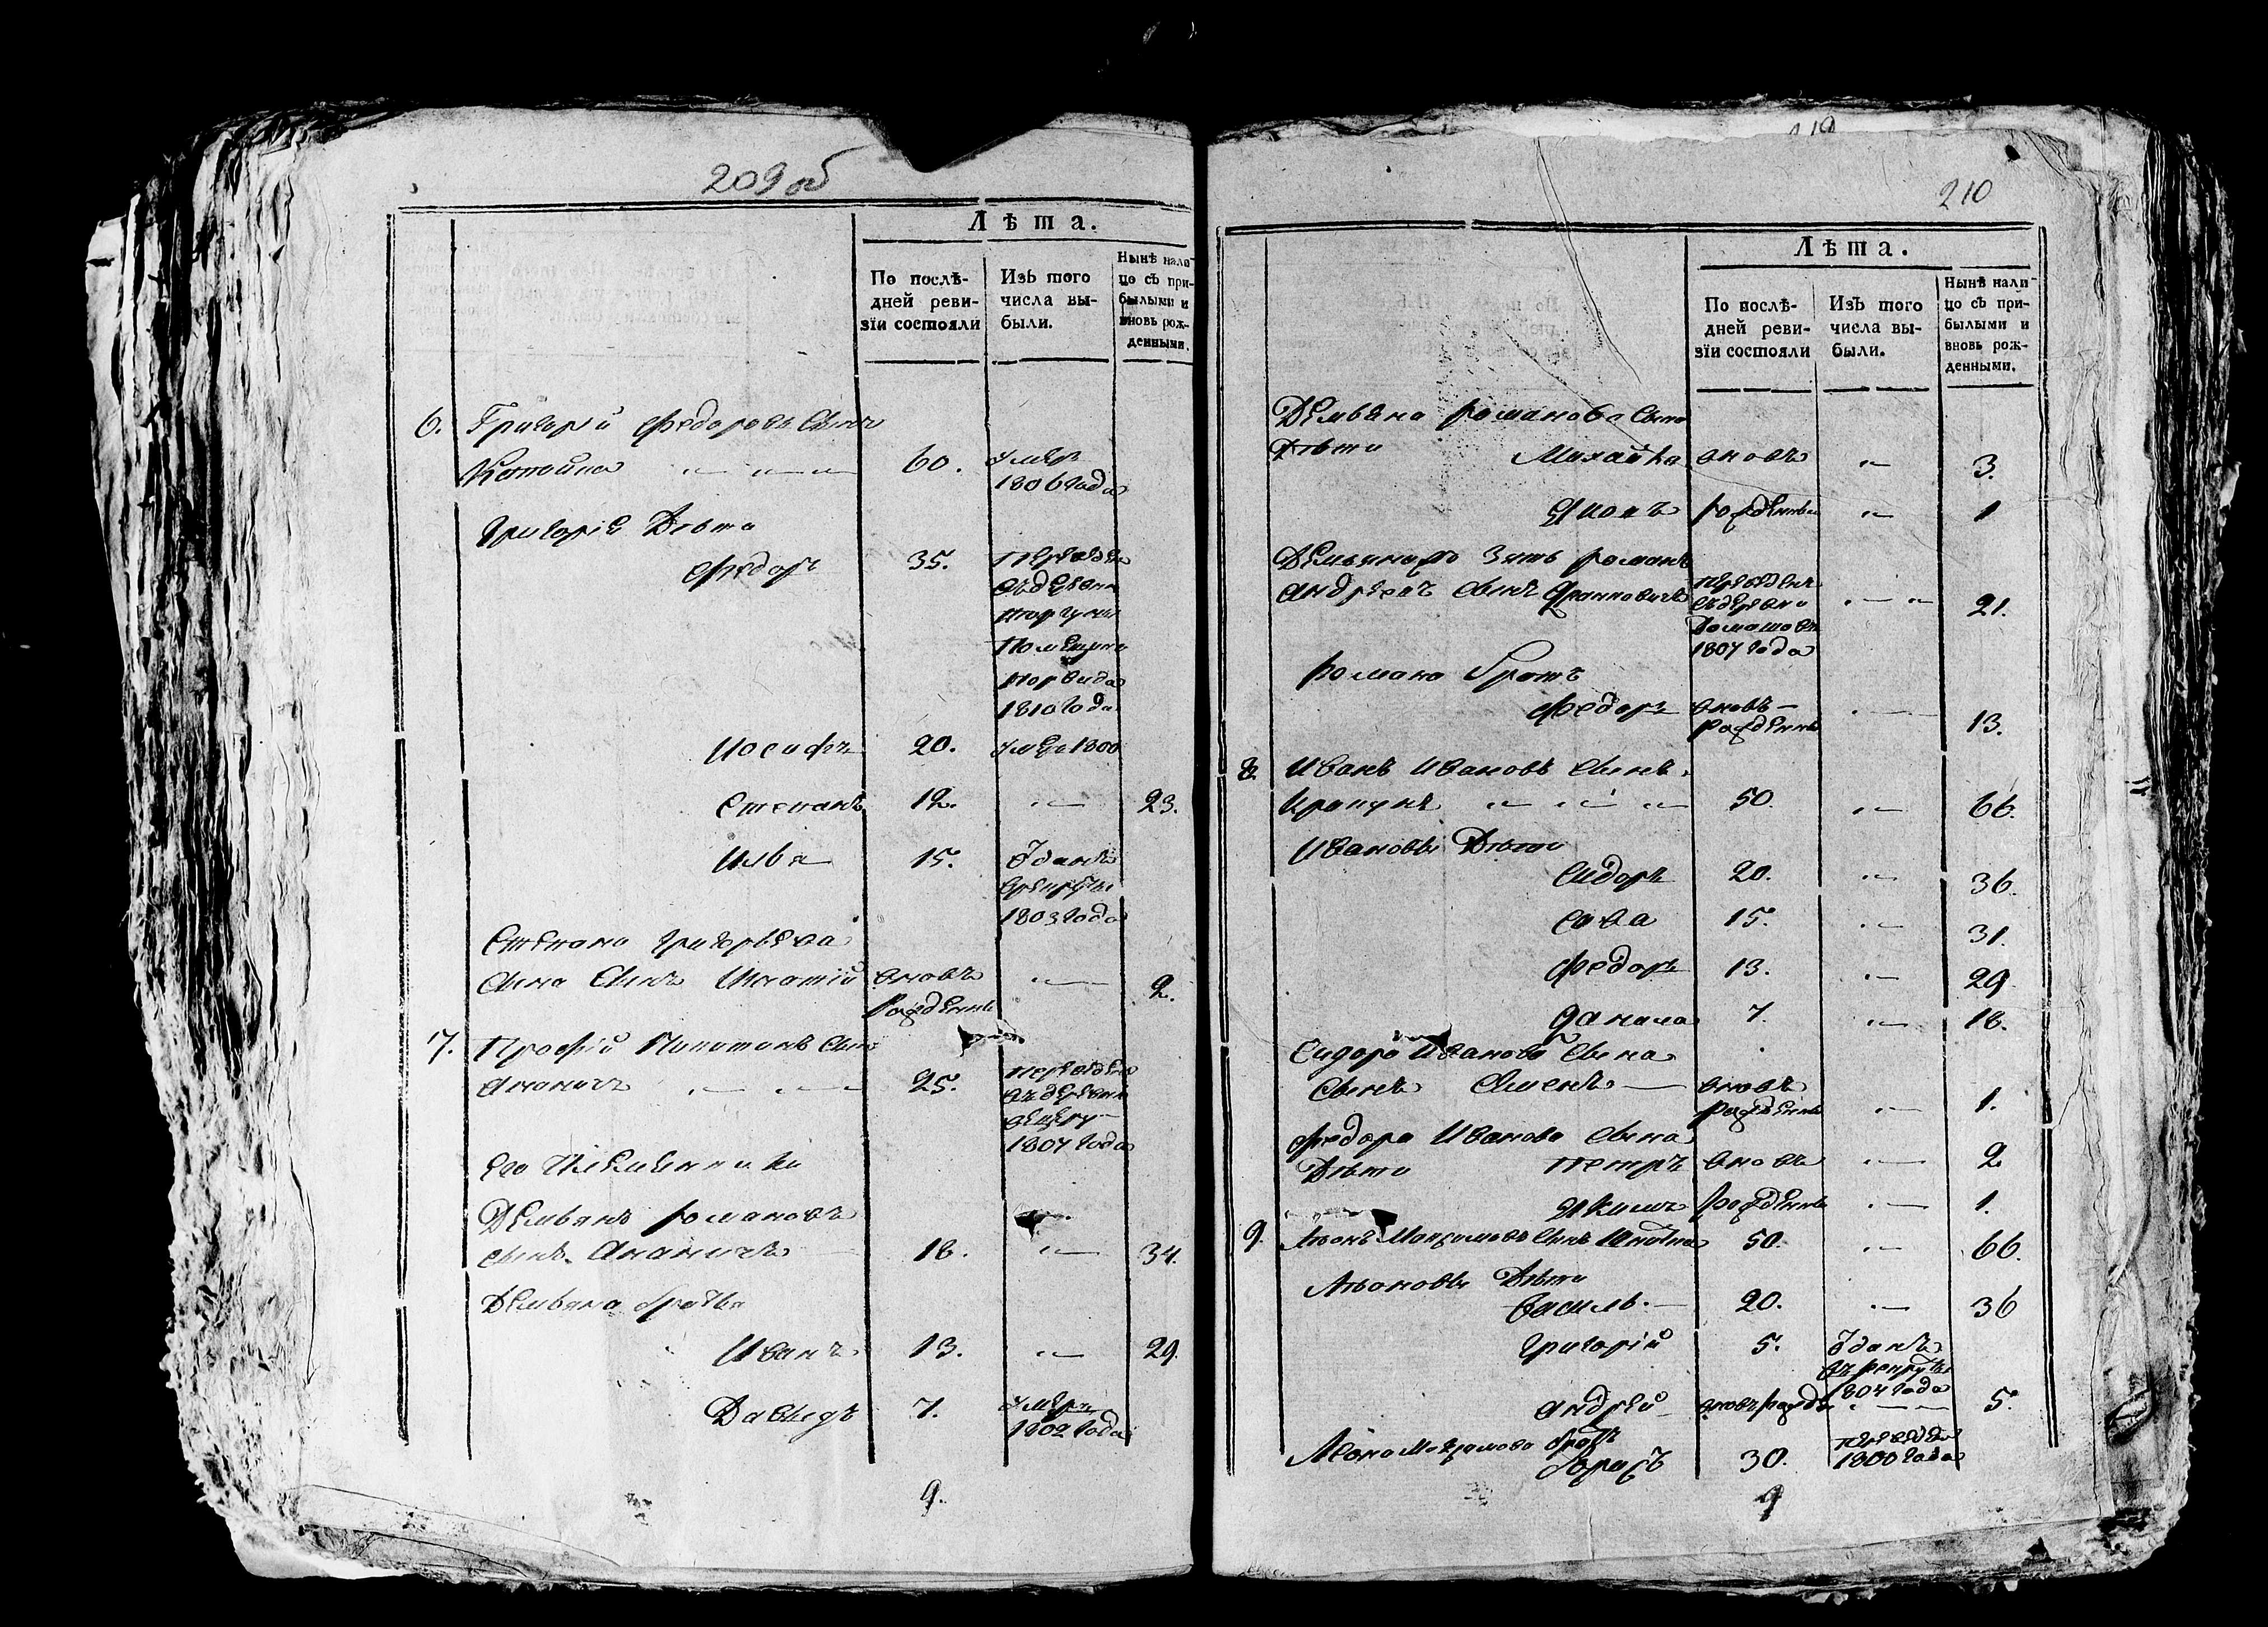 209 об
Лѣта.
По послѣ-
дней реви-
зіи состояли
Изъ того
числа вы-
были.
Нынѣ нали-
цо съ при-
былыми и
вновь рож-
денными.
6. Григорій Федоровъ Сынъ
60. умеръ
1806 года
Григорія Дѣти
Федоръ 35. переведенъ
въ деревню
1810 года
Иосифъ 20. умеръ 1800
Степанъ 12. 23.
Илья 15. Отданъ
в рекруты
1803 года
Степана Григорьева
Сына Сынъ Игнатій вновь 2.
рожденъ
7. Сынъ
Ананичъ 25. переведенъ
въ деревню
1807 года
Его племянники
Демьянъ Романовъ
сынъ Ананичъ 18. 34.
Демьяна братья
Иванъ 13. 29.
Давыдъ 7. умеръ
1802 года
9.
119
210
Лѣта.
По послѣ-
дней реви-
зіи состояли
Изъ того
числа вы-
были.
Нынѣ нали-
цо съ при-
былыми и
вновь рож-
денными.
Демьяна Романова Сына
Дѣти Михайла вновь 3.
рождены 1
Зять Романъ
Андреевъ Сынъ переведенъ
съ деревни 21.
1807 года
Романа братъ
Федоръ вновь
рожденъ 13.
8. Иванъ Ивановъ Сынъ
50. 66.
Ивановы Дѣти
Сидоръ 20. 36.
Сава 15. 31.
Федоръ 13. 29
Данила 7. 18.
Сидора Иванова Сына
Сынъ вновь
рожденъ 1.
Федора Иванова Сына
Дѣти Петръ вновь 2
Якимъ рожденъ 1.
9. Сынъ 50. 66.
Дѣти
Василь 20. 36
Григорій 5. Отданъ
въ рекруты
1804 года
Андрей вновь рожд 5.
братъ
30. переведенъ
1800 года
9